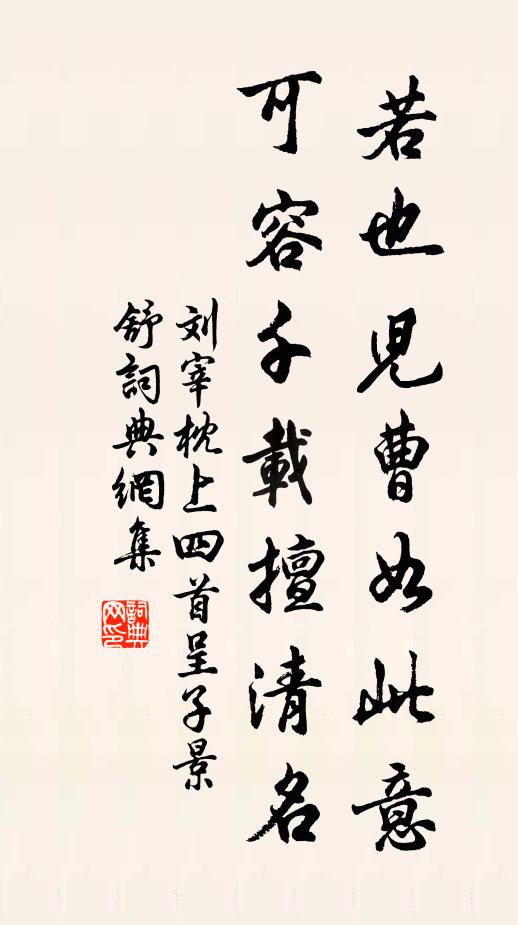 若也児曹如此意
可容千載擅清名
刘宰枕上四首呈子景
舒詞典網集
詞典网印